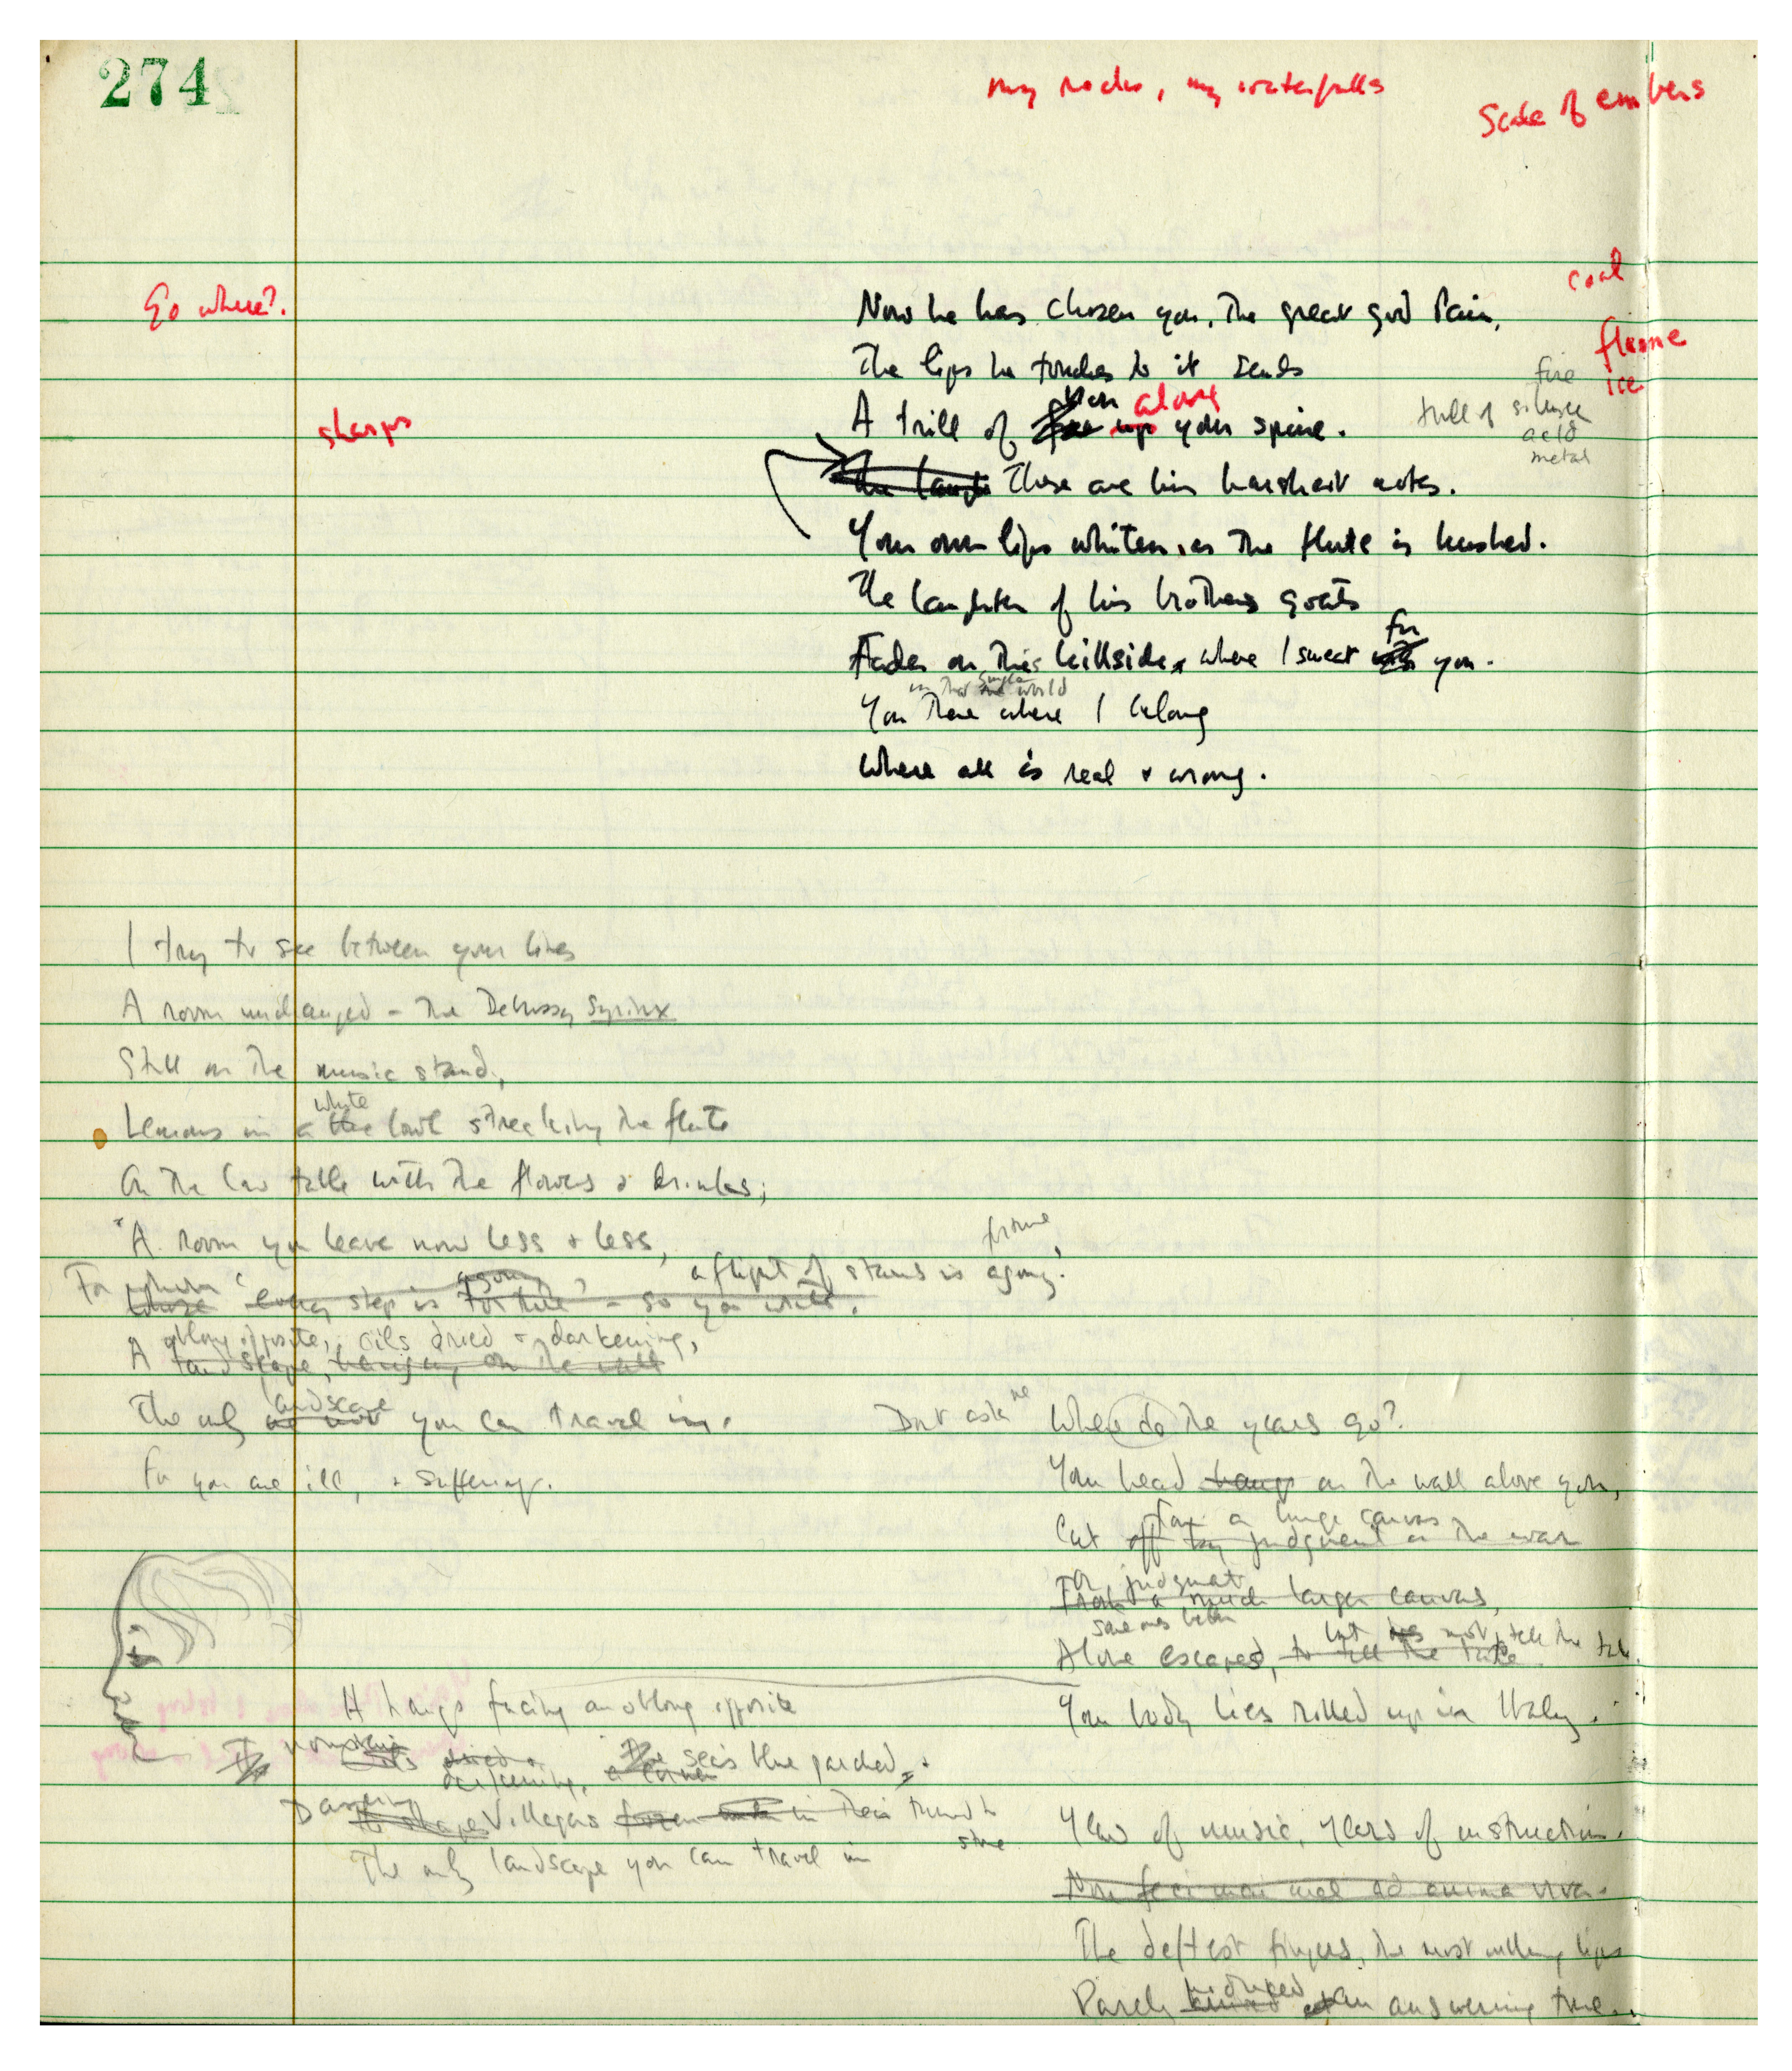 274
my rocks, my waterfalls
Scale of embers
coal
Go where?.
Now he has chosen you, the great god Pain,
flame
The lips he touches to it sends
fire
ice
you along
sharps
A trill of up your spine.
trill of silence
acid
metal
the laugh These are his harshest notes.
Your own lips whiten, as the flute is hushed.
The laughter of his brothers goats
for
Fades on this hillside, where I sweat with you.
in that single world
You there where I belong
Where all is real & wrong.
I try to see between your lines
A room unchanged – The Debussy Syrinx
Still on the music stand,
white
Lemons in a blue bowl streaking the flute
On the low table with the flowers & drinks;
A room you leave now less & less,
For whom a flight of stairs is agony.
Whose every step is torture – so you write.
oblong opposite, oils dried & darkening,
A landscape, hanging on the wall
landscape
The only you can travel in.
For you are ill, & suffering.
Don't ask me Where do the years go?
Your head hangs on the wall above you,
from a huge canvas
Cut off by judgment or the war
For judgment
From a much larger canvas,
Alone escaped, to tell the tale
but not tell the
It hangs facing an oblong opposite
Your body lies rolled up in Italy.
darkening, a corner sea's blue parched
Dancing
Its shapes Villagers frozen in their
The only landscape you can travel in
Years of music, years of instruction.
Non feci mai mal ad anima viva.
The deftest fingers, the most willing lips
Rarely an answering tune.